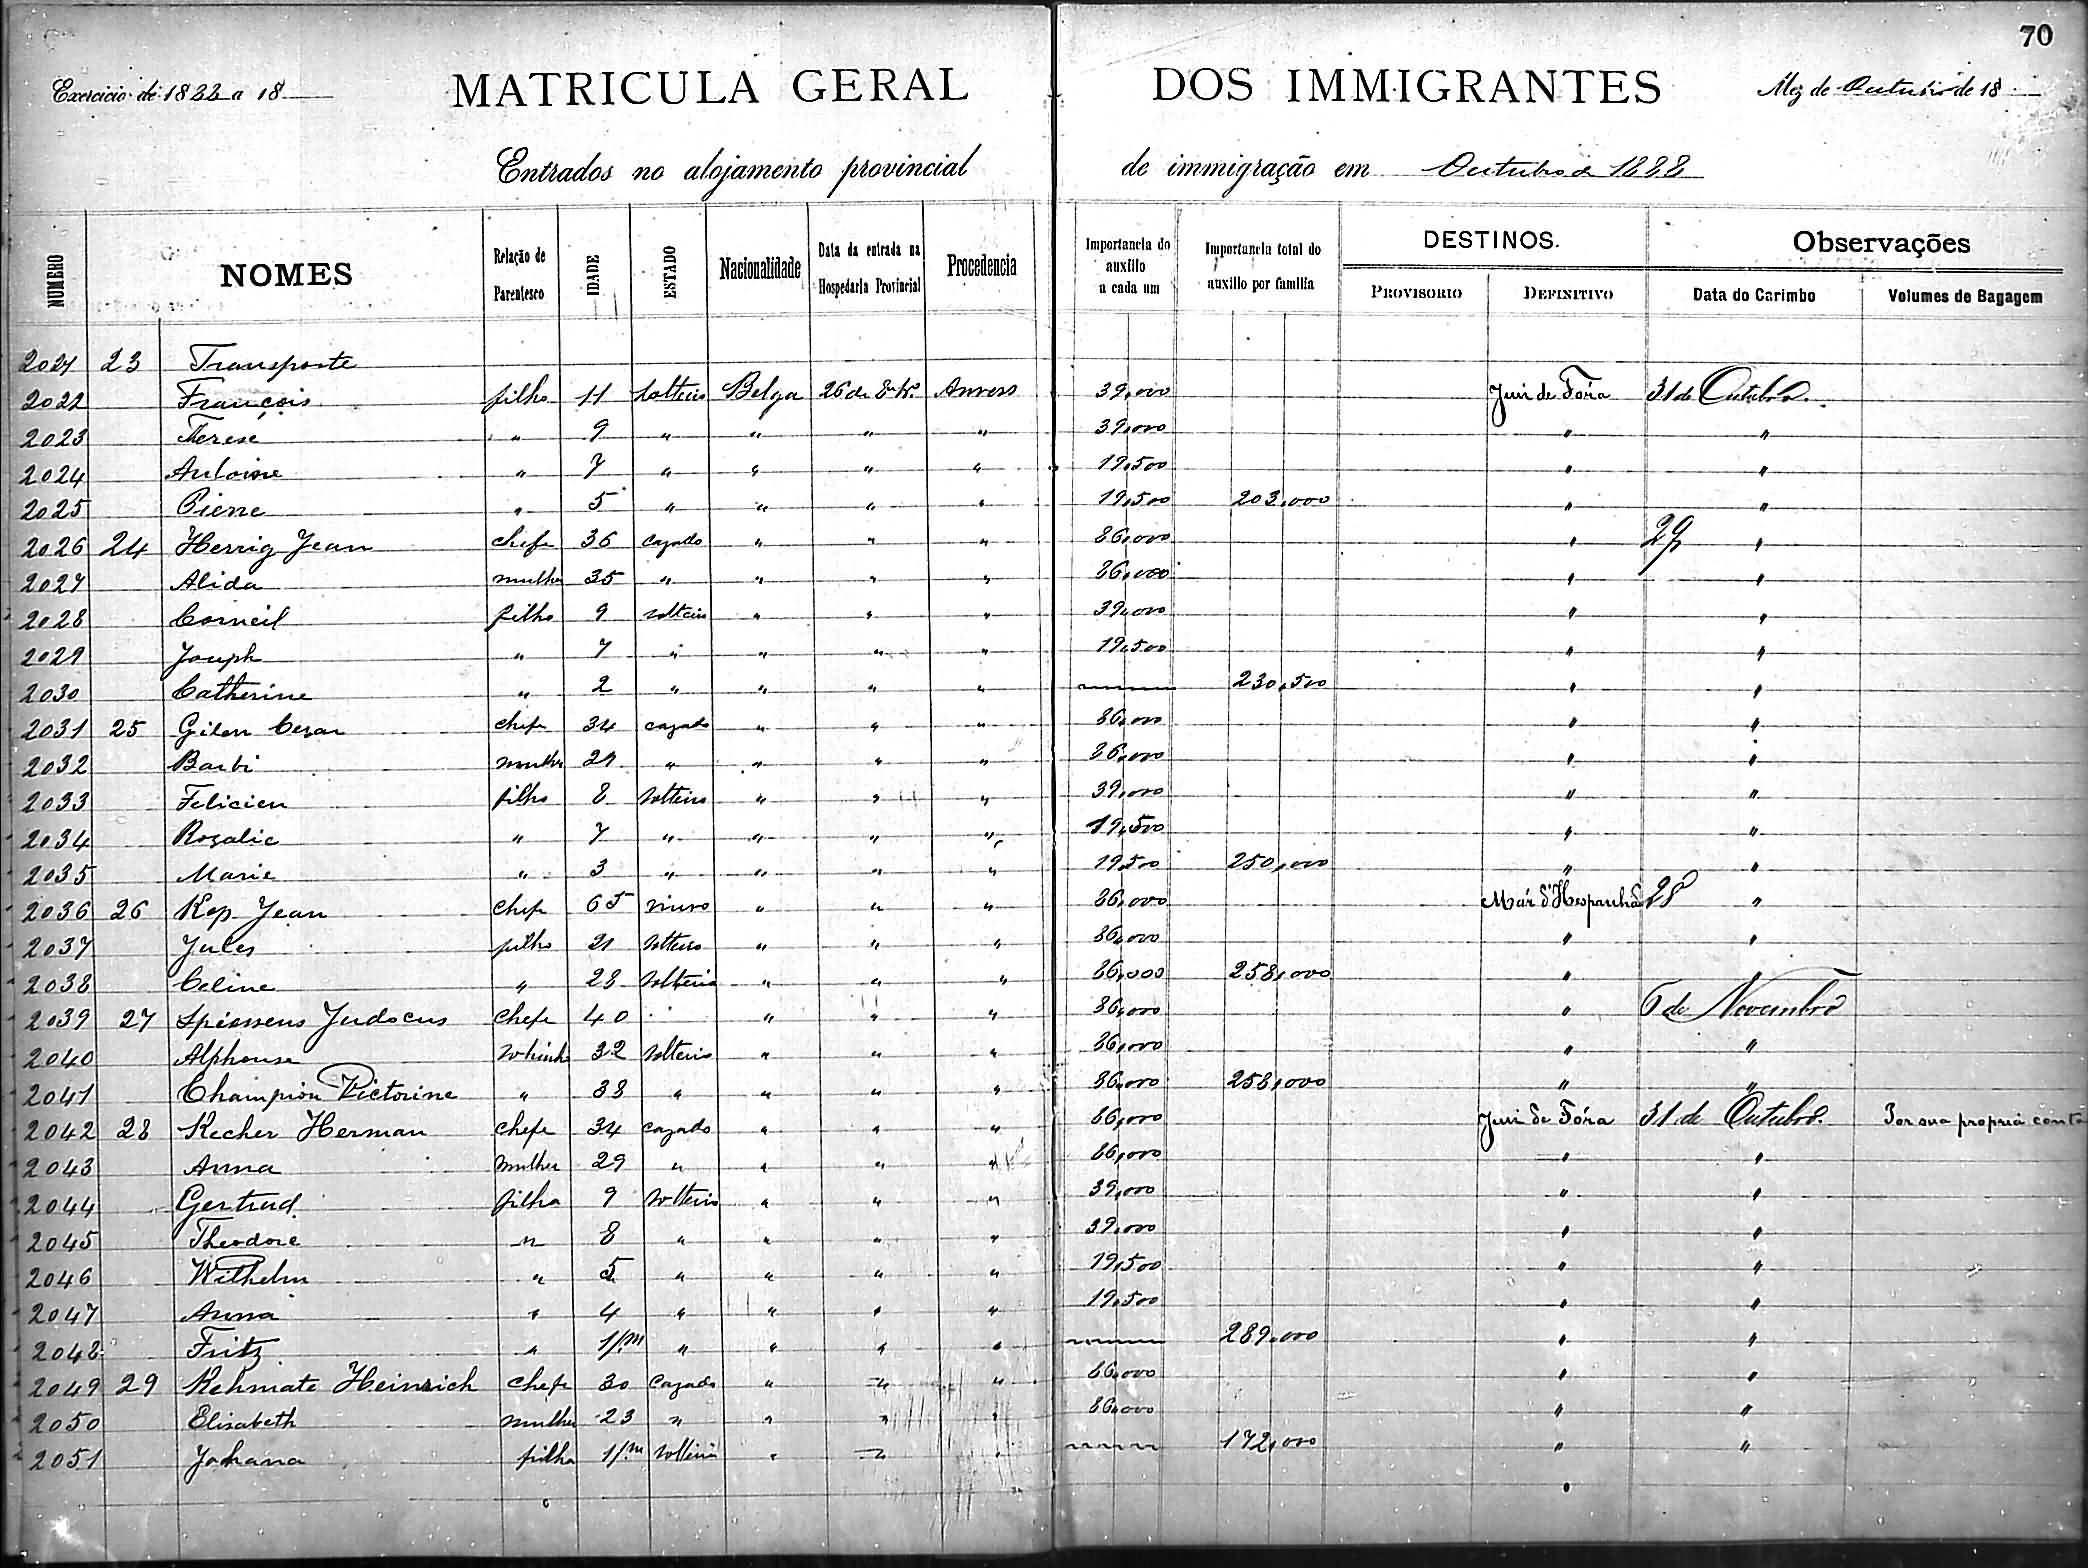 70
Exercicio de 1888 a 18
MATRICULA GERAL DOS IMMIGRANTES
Mez de Outubro de 18
Entrados no alojamento provincial de immigração em Outubro de 1888
NUMERO NOMES Relação de Parentesco IDADE ESTADO Nacionalidade Data da entrada na Hospedaria Provincial Procedencia Importancia do auxilio a cada um Importancia total do auxilio por familia DESTINOS. PROVISORIO DEFINITIVO Observações Data do Carimbo Volumes de Bagagem
2021 23 Transporte
2022 François filho 11 solteiro Belga 26 de Anvers 39,000 Juiz de Fóra 31 de Outubro.
2023 Therese " 9 " " " " 39,000 " "
2024 Antoine " 7 " " " " 19,500 " "
2025 Pierre " 5 " " " " 19,500 203,000 " "
2026 24 Herrig Jean chefe 36 cazado " " " 86,000 " 29 "
2027 Alida mulher 35 " " " " 86,000 " "
2028 Corneil filho 9 solteiro " " " 39,000 " "
2029 Joseph " 7 " " " " 19,500 " "
2030 Catherine " 2 " " " " 230,500 " "
2031 25 Gilen Cezar chefe 34 cazado " " " 86,000 " "
2032 Barbi mulher 29 " " " " 86,000 " "
2033 Felicien filho 8 solteiro " " " 39,000 " "
2034 Rozalie " 7 " " " " 19,500 " "
2035 Marie " 3 " " " " 19,500 250,000 " "
2036 26 Kep Jean chefe 65 viuvo " " " 86,000 Mar d'Hespanha 28 "
2037 Jules filho 21 solteiro " " " 86,000 " "
2038 Celine " 28 solteiro " " " 86,000 258,000 " "
2039 27 Spiessens Judocus chefe 40 " " " 86,000 " 6 de Novembro
2040 Alphonse 32 solteiro " " " 86,000 " "
2041 Champion Victorine " 38 " " " " 86,000 258,000 " "
2042 28 Kecher Herman chefe 34 cazado " " " 86,000 Juiz de Fóra 31 de Outubro. Por sua propria conta
2043 Anna mulher 29 " " " " 86,000 " "
2044 Gertrud filha 9 solteiro " " " 39,000 " "
2045 Theodore " 8 " " " " 39,000 " "
2046 Wilhelm " 5 " " " " 19,500 " "
2047 Anna " 4 " " " " 19,500 " "
2048 Fritz " 1/m " " " " 289,000 " "
2049 29 Rehmate Heinrich chefe 30 cazado " " " 86,000 " "
2050 Elisabeth mulher 23 " " " " 86,000 " "
2051 Johana filha 1/m solteiro " " " 172,000 " "